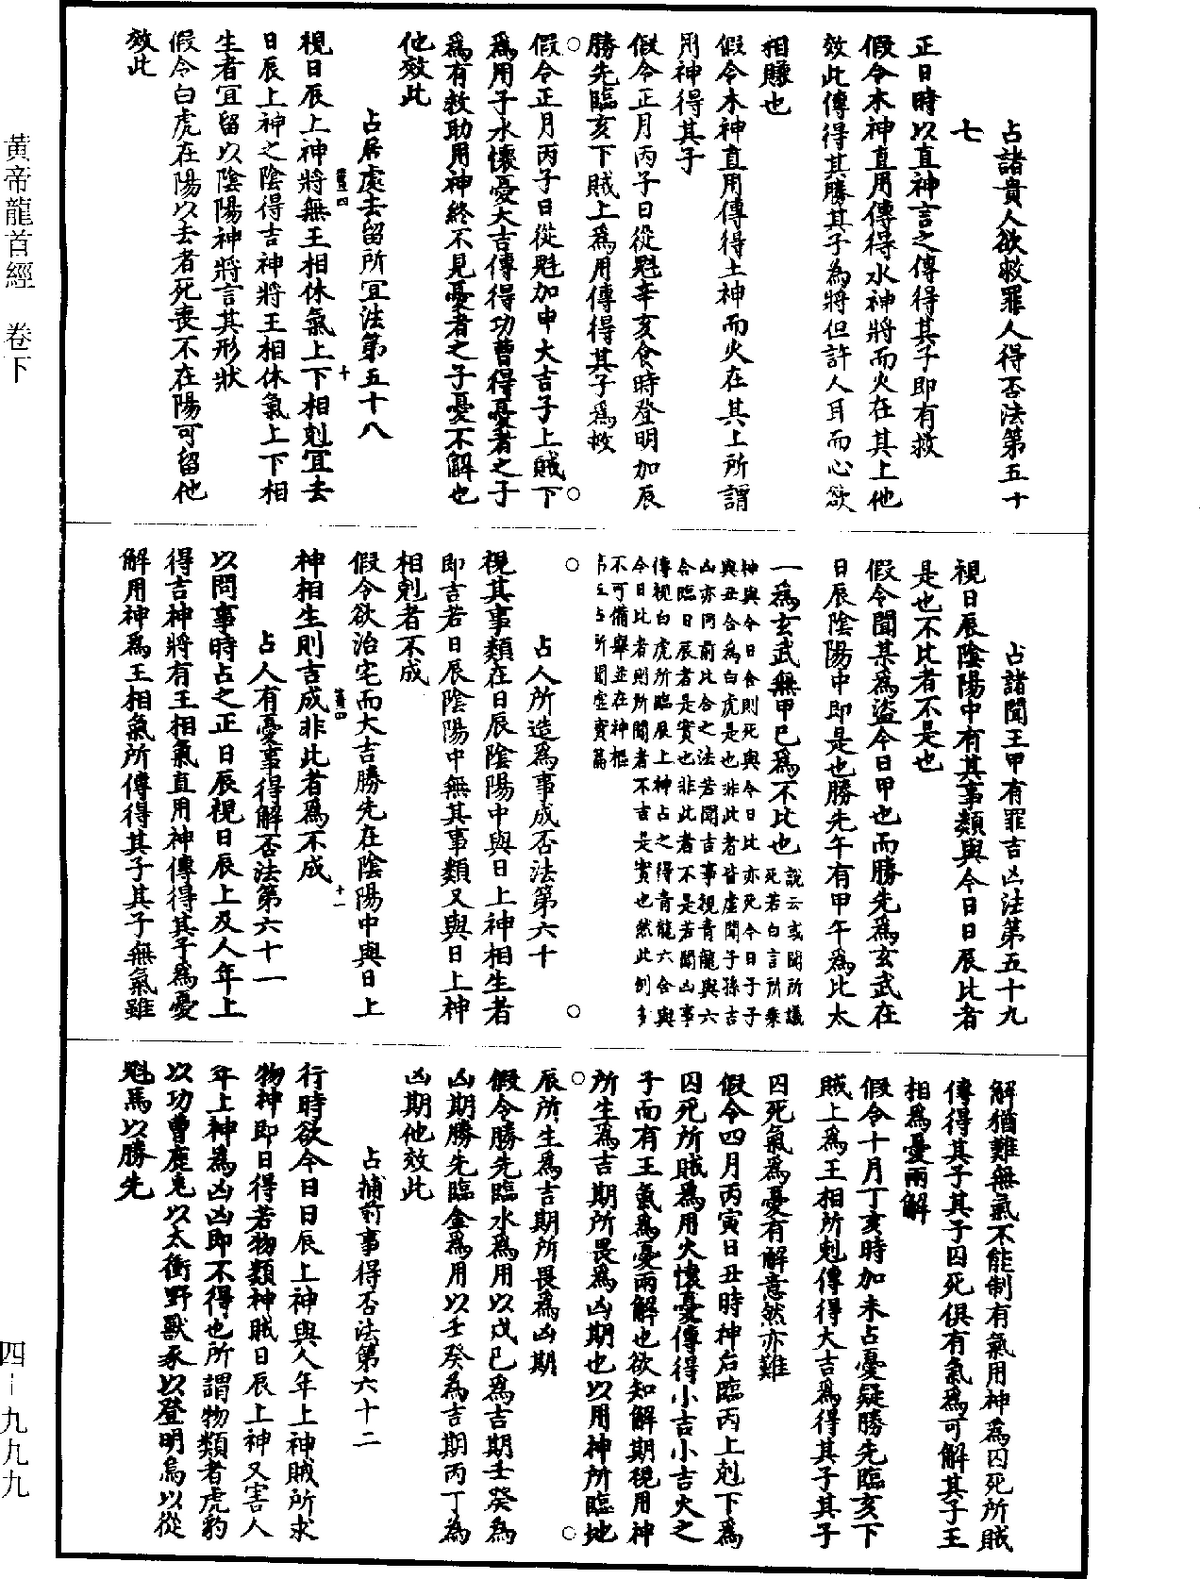 占諸貴人欲救罪人得否法第五十
七
正日時以直神言之傳得其子即有救
假令木神直用傳得水神將而火在其上他
效此傳得其勝其子為將但許人耳而心欲
相賺也
假令木神直用傳得土神而火在其上所謂
用神得其子
假令正月丙子日從魁辛亥食時登明加辰
勝先臨亥下賊上為用傳得其子為救
假令正月丙子日從魁加申大吉子上賊下
為用子水懷憂大吉傳得功曹得憂者之子
為有救助用神終不見憂者之子憂不解也
他效此
占居處去留所宜法第五十八
視日辰上神將無王相休氣上下相剋宜去
日辰上神之陰得吉神將王相休氣上下相
生者宜留以陰陽神將言其形狀
假令白虎在陽以去者死喪不在陽可留他
效此
占諸聞王甲有罪吉凶法第五十九
視日辰陰陽中有其事類與今日日辰比者
是也不比者不是也
假令聞某為盜今日甲也而勝先為玄武在
日辰陰陽中即是也勝先午有甲午為比太
一為玄武無甲巳為不比也說云或聞所議
死若白言所乘
神與今日合則死與今日比亦死今日子子
與丑合為白虎是也非此者皆虛聞子孫吉
凶亦同前比合之法若聞吉事視青龍與六
合臨日辰者是實也非此者不是若聞凶事
傳視白虎所臨辰上神占之得青龍六合與
今日比者則所聞者不吉是實也然此例多
不可備舉並在神樞
第五占所聞虛實篇
占人所造為事成否法第六十
視其事類在日辰陰陽中與日上神相生者
即吉若日辰陰陽中無其事類又與日上神
相剋者不成
假令欲治宅而大吉勝先在陰陽中與日上
神相生則吉成非此者為不成
占人有憂事得解否法第六十一
以問事時占之正日辰視日辰上及人年上
得吉神將有王相氣直用神傳得其子為憂
解用神為王相氣所傳得其子其子無氣雖
解猶難無氣不能制有氣用神為囚死所賊
傳得其子其子囚死俱有氣為可解其子王
相為憂兩解
假令十月丁亥時加未占憂疑勝先臨亥下
賊上為王相所剋傳得大吉為得其子其子
囚死氣為憂有解意然亦難
假令四月丙寅日丑時神后臨丙上剋下為
囚死所賊為用火懷憂傳得小吉小吉火之
子而有王氣為憂兩解也欲知解期視用神
所生為吉期所畏為凶期也以用神所臨地
辰所生為吉期所畏為凶期
假令勝先臨水為用以戊巳為吉期壬癸為
凶期勝先臨金為用以壬癸為吉期丙丁為
凶期他效此
占捕前事得否法第六十二
行時欲令日日辰上神與人年上神賊所求
物神即日得若物類神賊日辰上神又害人
年上神為凶凶即不得也所謂物類者虎豹
以功曹鹿兔以太衝野獸豕以登明鳥以從
魁馬以勝先
黄帝龍首經　卷下
四－九九九